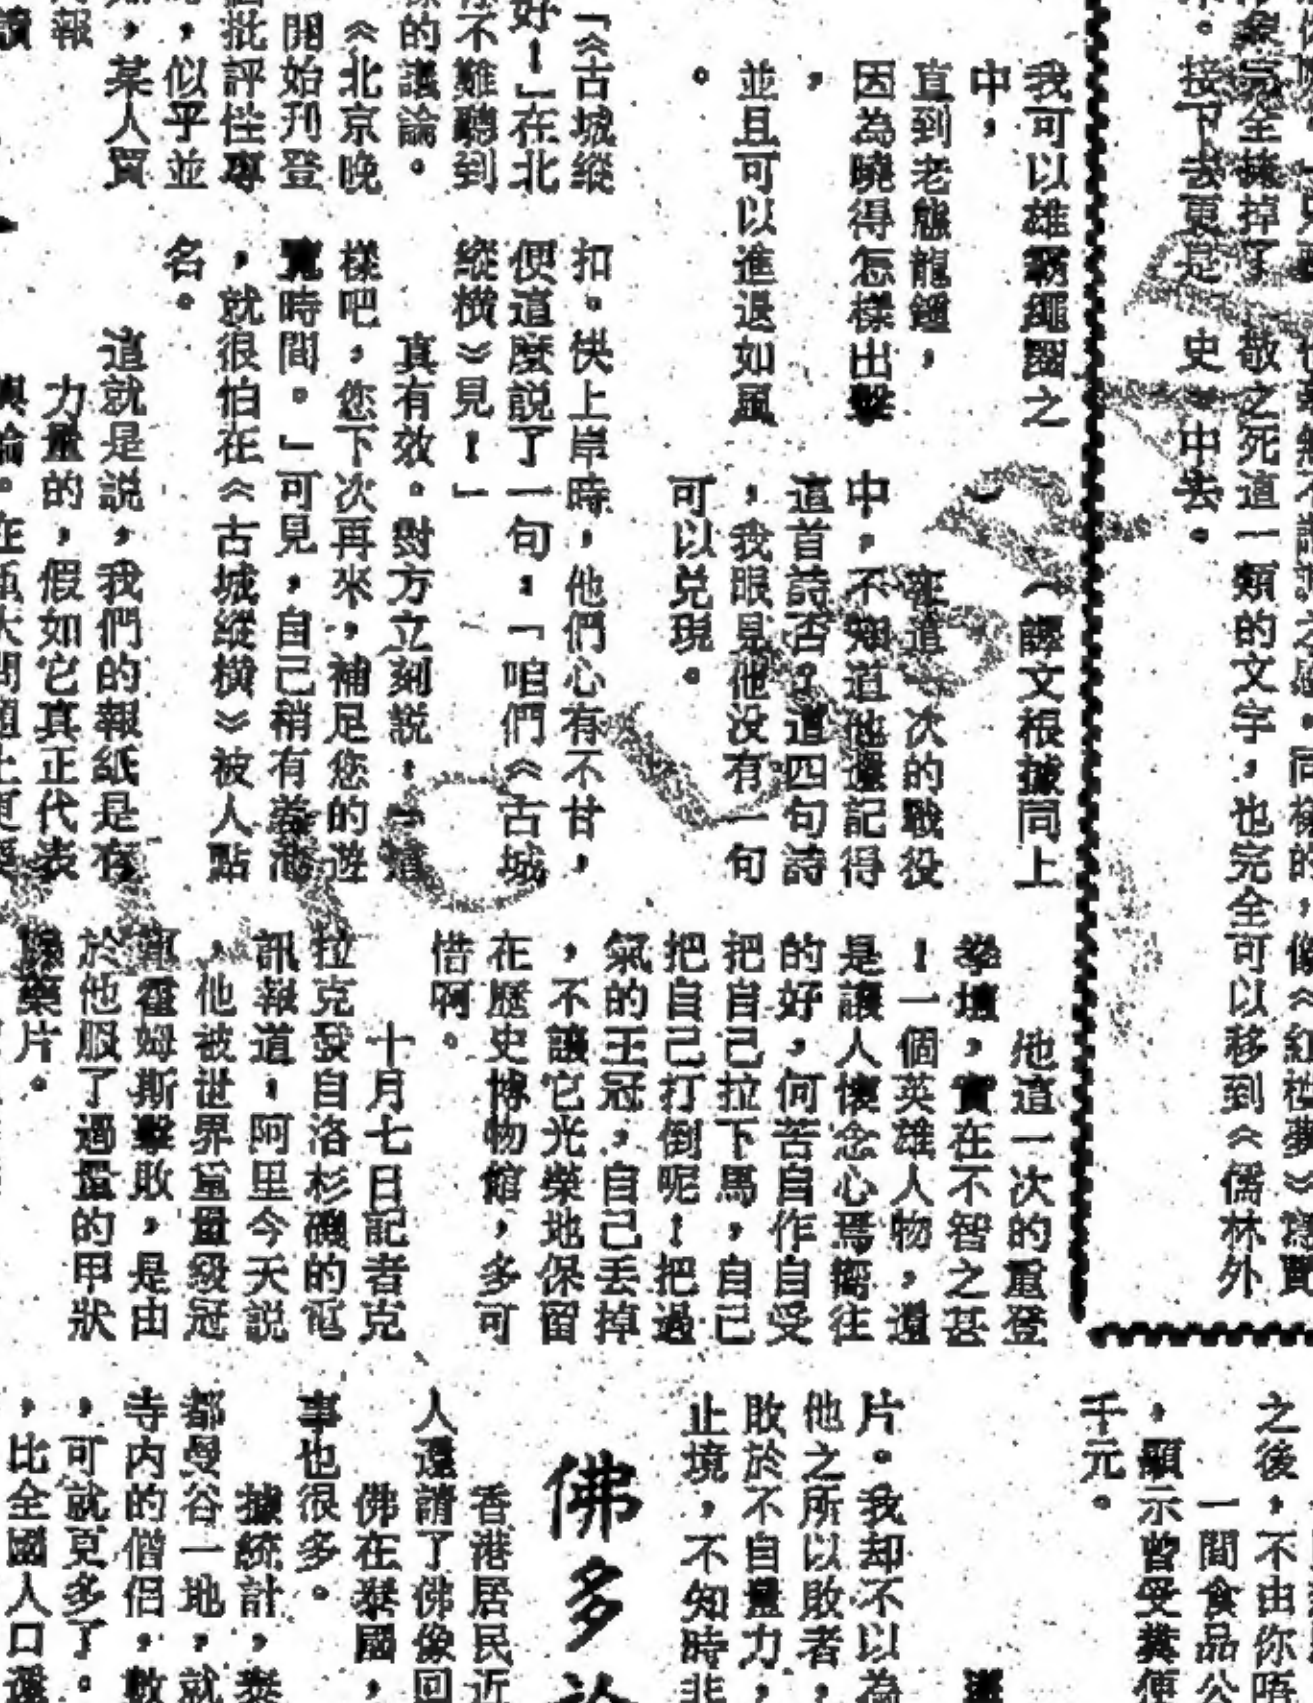 接下去更是
史》中去。
敬之死這一類的文字，也完全可以移到《儒林外
我可以雄霸繩圈之
中，
直到老態龍鍾，
因為曉得怎樣出擊
，
並且可以進退如風
。
（譯文根據同上
）
在這一次的戰役
中，不知道他還記得
這首詩否？這四句詩
，我眼見他没有一句
可以兑現。
他這一次的重登
拳壇，實在不智之甚
！一個英雄人物，還
是讓人懷念心焉嚮往
的好，何苦自作自受
把自己拉下馬，自己
把自己打倒呢！把過
氣的王冠，自己丢掉
，不讓它光榮地保留
在歷史博物館，多可
惜啊。
十月七日記者克
拉克發自洛杉磯的電
訊報道，阿里今天説
，他被世界重量級冠
軍霍姆斯擊敗，是由
於他服了過量的甲狀
腺藥片。
「《古城縱
好！」在北
不難聽到
的議論。
《北京晚
開始刊登
批評性專
，似乎並
，某人買
報
扣。快上岸時，他們心有不甘，
便這麼説了一句：「咱們《古城
縱横》見！」
真有效。對方立刻説：「這
樣吧，您下次再來，補足您的遊
覽時間。」可見，自己稍有差池
，就很怕在《古城縱横》被人點
名。
這就是説，我們的報紙是有
力量的，假如它真正代表
之後，不由你唔
一間食品公
，顯示曾受糞便
千元。
片。我却不以為
他之所以敗者，
敗於不自量力，
止境，不知時非
佛多
香港居民近
人還請了佛像回
佛在泰國，
事也很多。
據統計，泰
都曼谷一地，就
寺内的僧侣，數
，可就更多了。
，比全國人口還